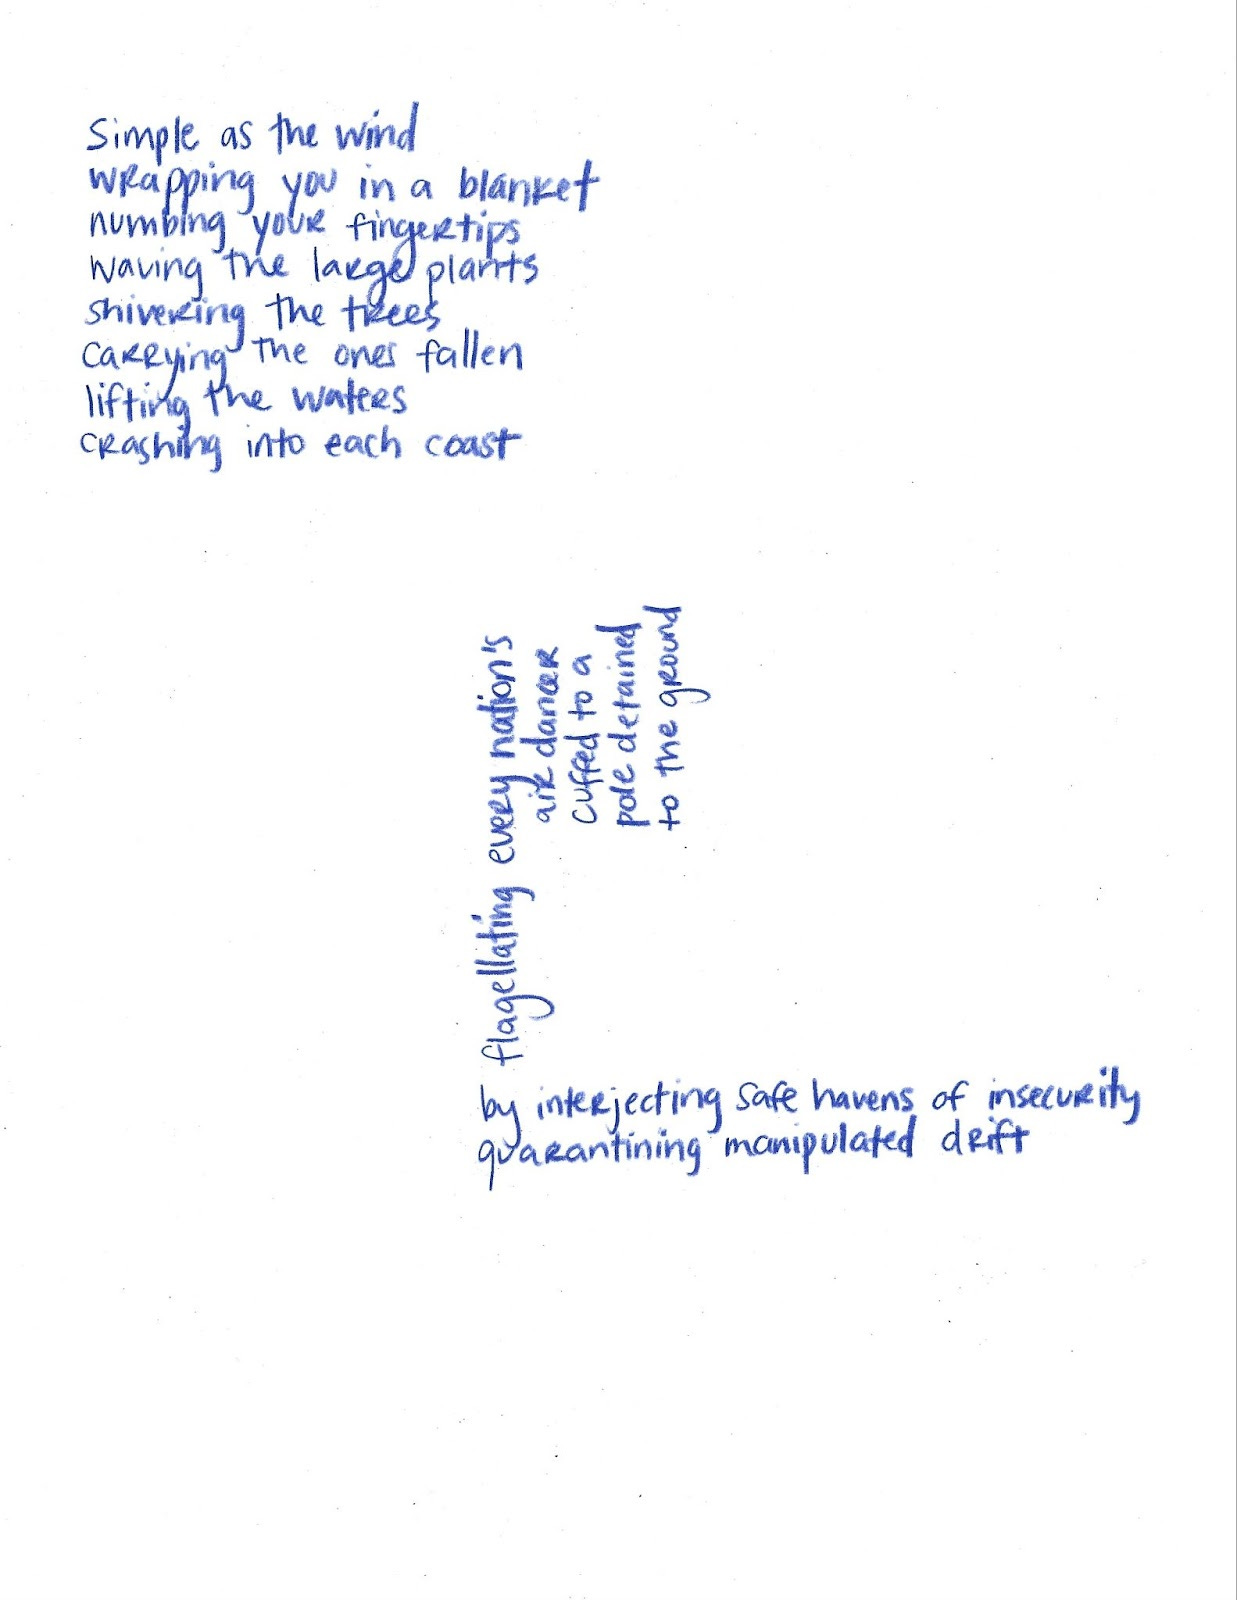 Simple as the wind
wrapping you in a blanket
numbing your fingertips
waving the large plants
shivering the trees
carrying the ones fallen
lifting the waters
crashing into each coast
flagellating every nation's
air dancer
cuffed to a
pole detained
to the ground
by interjecting safe havens of insecurity
quarantining manipulated drift